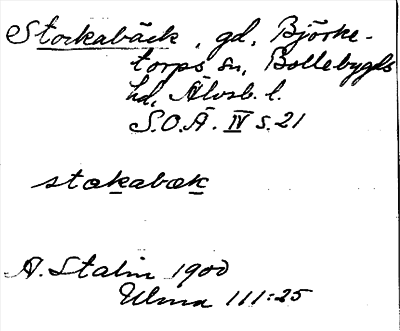 Stockabäck, gd, Björke-
torps sn, Bollebygds
hd, Älvsb. l.
S.O.Ä. IV s. 21
stakabæk
A. Stalin 1900
Ulma 111:25